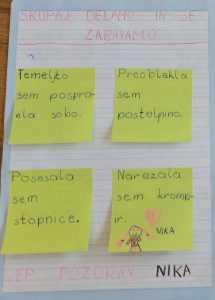 SKUPAJ DELAMO IN SE
ZABAVAMO
Temeljito
sem pospra-
vila sobo.
Preoblekla
sem
posteljnino.
Posesala
sem
stopnice.
Narezala
sem kromp-
ir.
NIKA
LEP POZDRAV NIKA